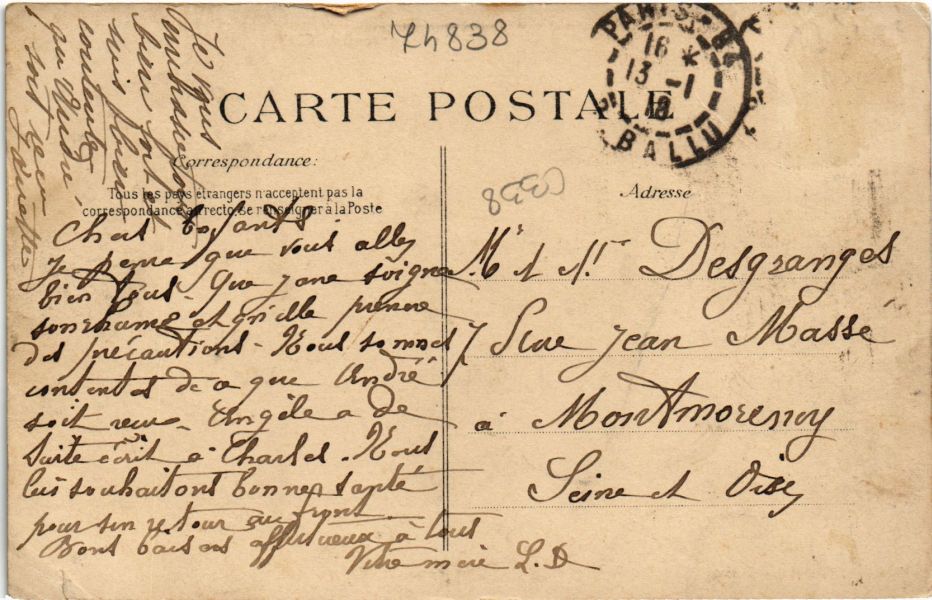 74838
PARIS 84
16 *
13 -1
18
BALLU
CARTE POSTALE
Correspondance:
Tous les pays étrangers n'acceptent pas la
correspondance au recto, se renseigner à la Poste
C338
Adresse
Chers Enfants
Je pense que vous allez
bien tous. Que Jane soigne
son rhume et qu'elle prenne
des précautions. Nous sommes
contentes de ce que André
soit venu. Angèle a de
suite écrit à Charles. Nous
lui souhaitons bonne santé
pour son retour au front
Bons baisers affectueux à tous
Votre mère L.D
Je vous
bien fort et
suis
contente
qu'André
soit venu
Mr et Mr Desgranges
7 Rue Jean Massé
à Montmorency
Seine et Oise